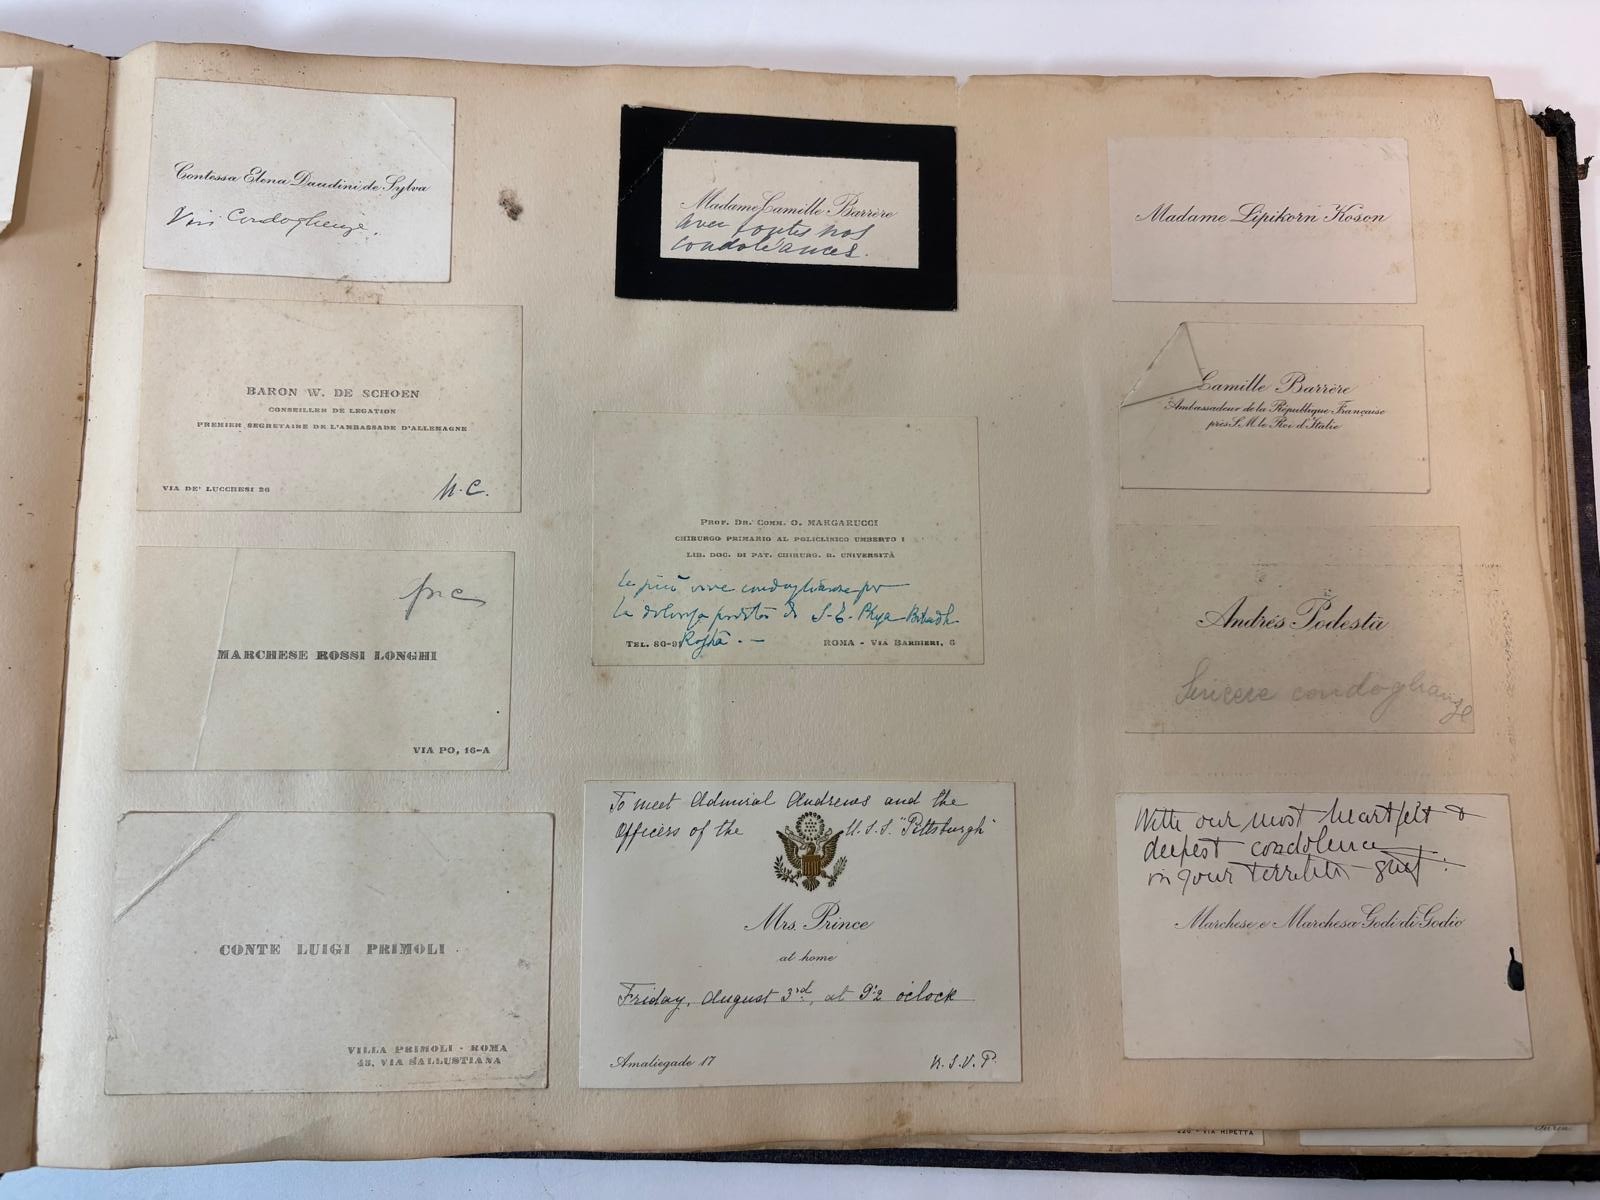 Contessa Elena Daudini de Sylva
Vivi Condoglienze.
Madame Camille Barrère
avec toutes nos
condoléances.
Madame Lipikorn Koson
BARON W. DE SCHOEN
CONSEILLER DE LEGATION
PREMIER SECRETAIRE DE L'AMBASSADE D'ALLEMAGNE
VIA DE' LUCCHESI 26
Camille Barrère
Ambassadeur de la République Française
près S. M. le Roi d'Italie
PROF. DR. COMM. O. MARGARUCCI
CHIRURGO PRIMARIO AL POLICLINICO UMBERTO I
LIB. DOC. DI PAT. CHIRURG. R. UNIVERSITÀ
Le più vive condoglianze per
la dolorosa perdita di S. E. Phya
TEL. 80-9
ROMA - VIA BARBIERI, 6
MARCHESE ROSSI LONGHI
VIA PO, 16-A
Andrés Podestà
Sincere condoglianze
CONTE LUIGI PRIMOLI
VILLA PRIMOLI - ROMA
45, VIA SALLUSTIANA
To meet Admiral Andrews and the
Officers of the U.S.S. "Pittsburgh"
Mrs. Prince
at home
Friday, August 3rd, at 9½ o'clock
Amaliegade 17
R.S.V.P.
With our most heartfelt &
deepest condolence
in your terrible grief.
Marchese e Marchesa Godi di Godio
220 - VIA RIPETTA